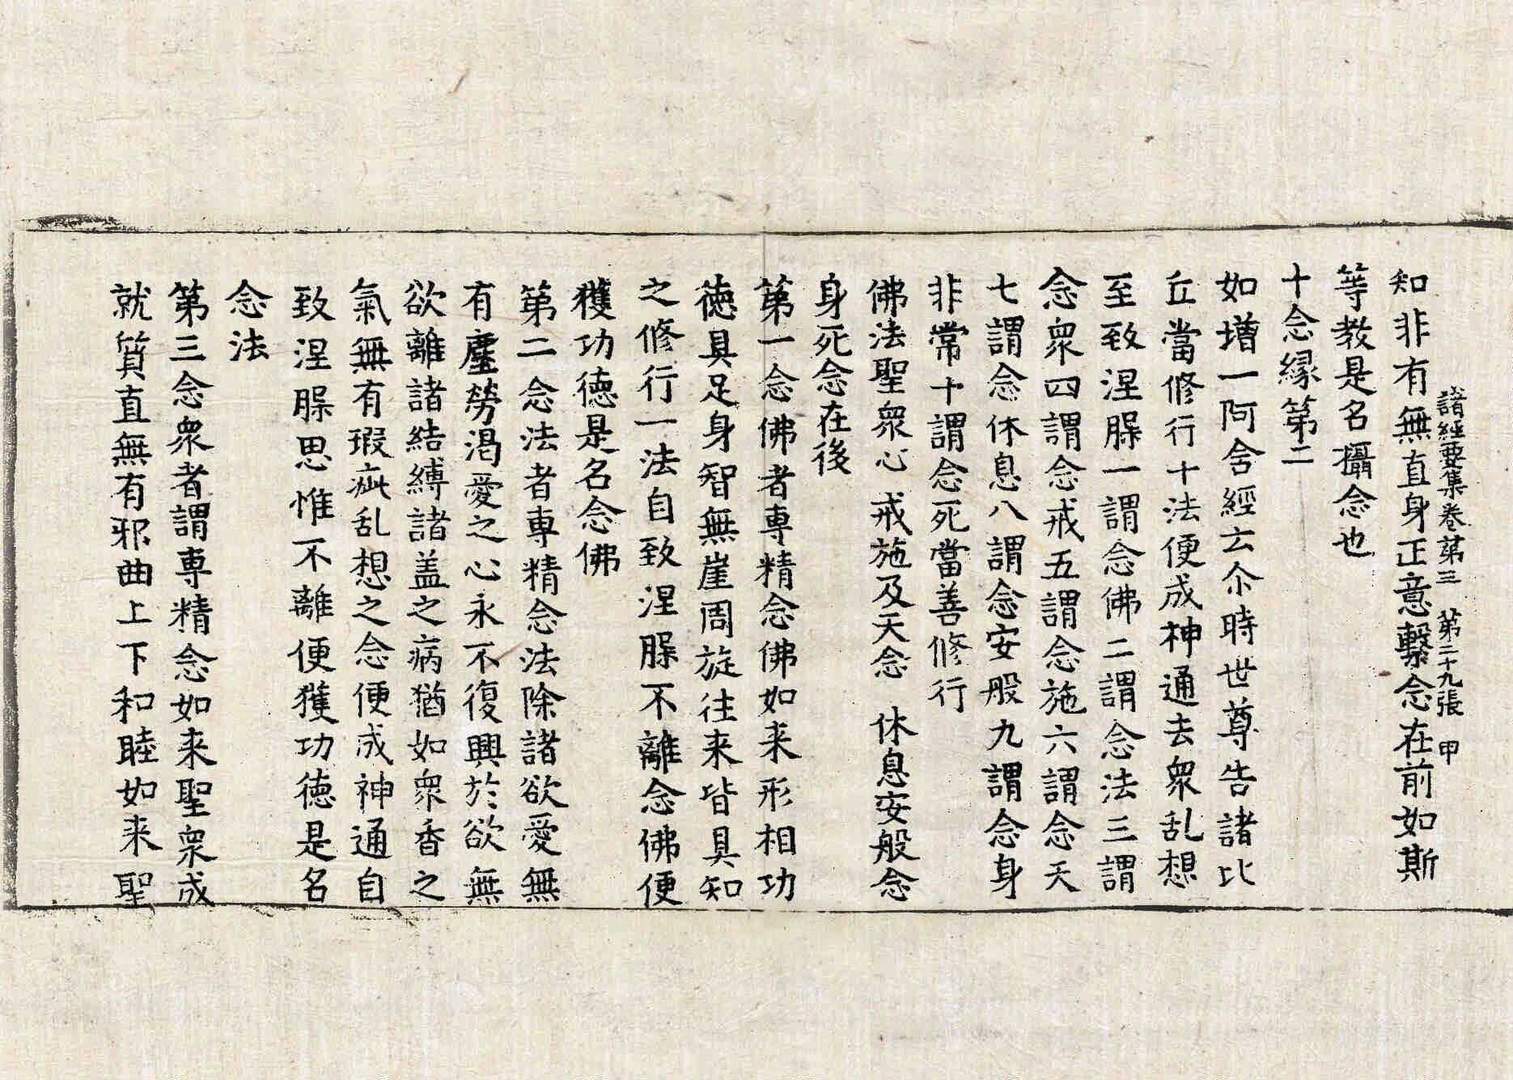 諸經要集卷第三　第二十九張　甲
知非有無直身正意繫念在前如斯
等教是名攝念也
十念縁第二
如增一阿含經云尒時世尊告諸比
丘當修行十法便成神通去衆乱想
至致涅槃一謂念佛二謂念法三謂
念衆四謂念戒五謂念施六謂念天
七謂念休息八謂念安般九謂念身
非常十謂念死當善修行
佛法聖衆心　戒施及天念　休息安般念
身死念在後
第一念佛者專精念佛如来形相功
德具足身智無崖周旋往来皆具知
之修行一法自致涅槃不離念佛便
獲功德是名念佛
第二念法者專精念法除諸欲愛無
有塵勞渴愛之心永不復興於欲無
欲離諸結縛諸盖之病猶如衆香之
氣無有瑕疵乱想之念便成神通自
致涅槃思惟不離便獲功德是名
念法
第三念衆者謂專精念如来聖衆成
就質直無有邪曲上下和睦如来聖